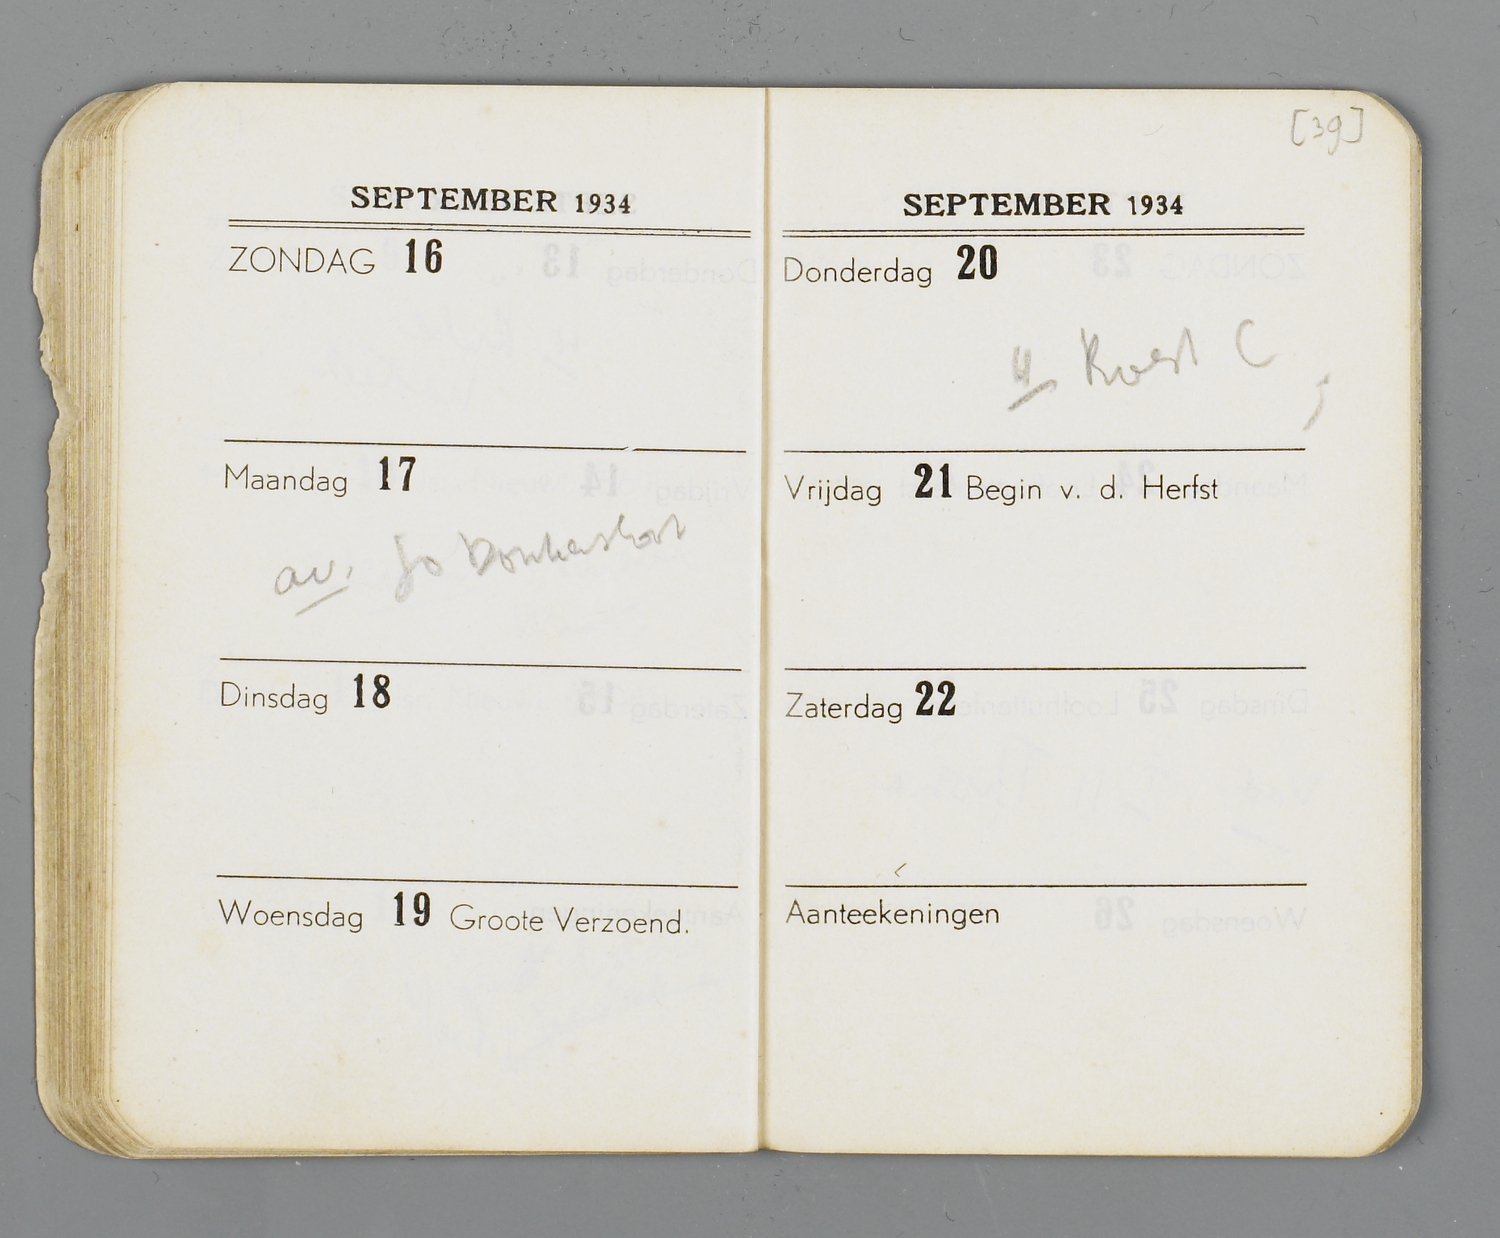 SEPTEMBER 1934
ZONDAG 16
Maandag 17
av. Jo
Dinsdag 18
Woensdag 19 Groote Verzoend.
[39]
SEPTEMBER 1934
Donderdag 20
Roest C
Vrijdag 21 Begin v. d. Herfst
Zaterdag 22
Aanteekeningen